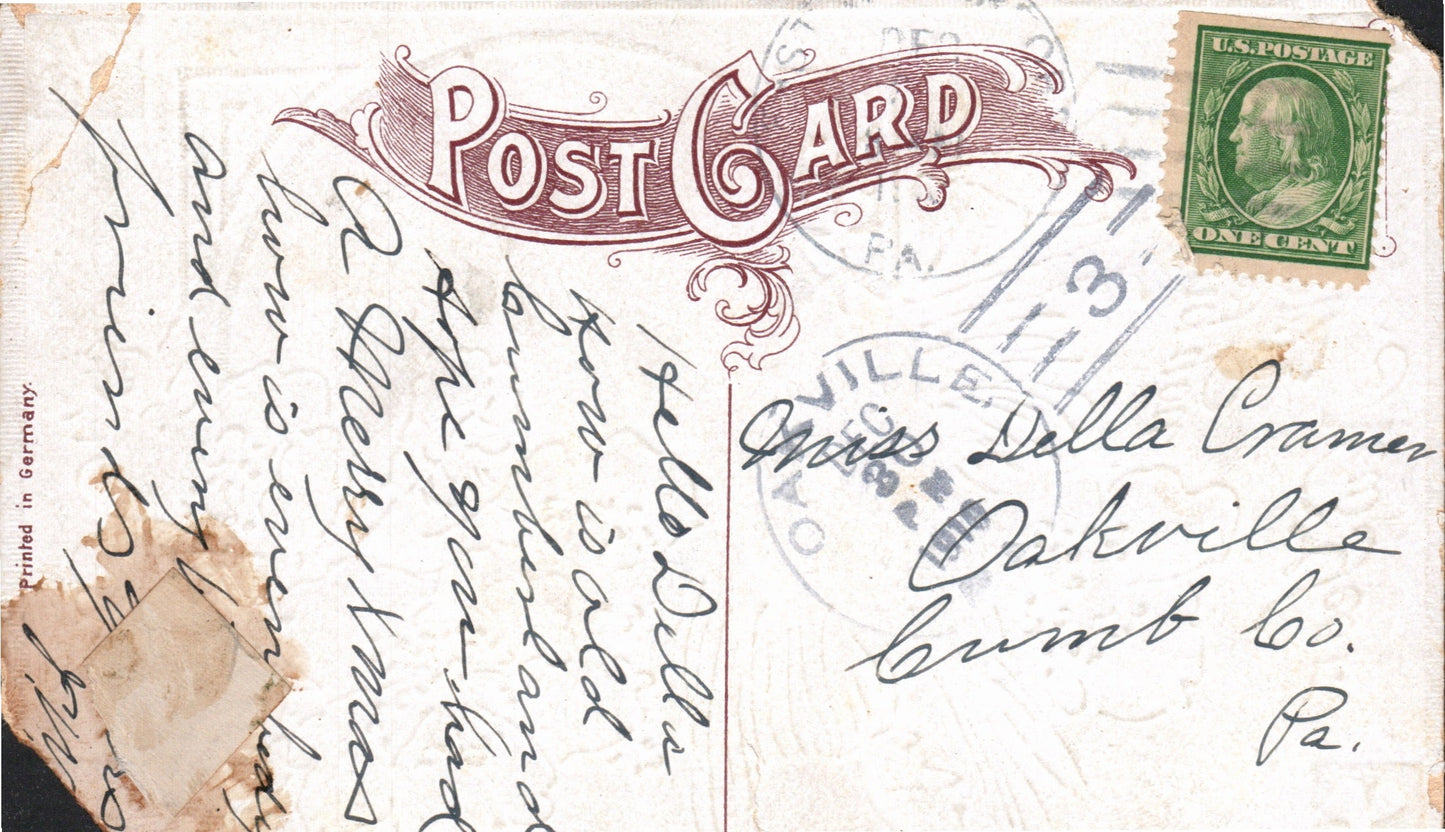 POST CARD
U.S. POSTAGE
ONE CENT
DEC
PA.
3
OAKVILLE
DEC
30
PM
Miss Della Cramer
Oakville
Cumb Co.
Pa.
Hello Della
How is old
Cumberland
Hope you had
A Merry Xmas
how is everybody
and every
friends
Printed in Germany.